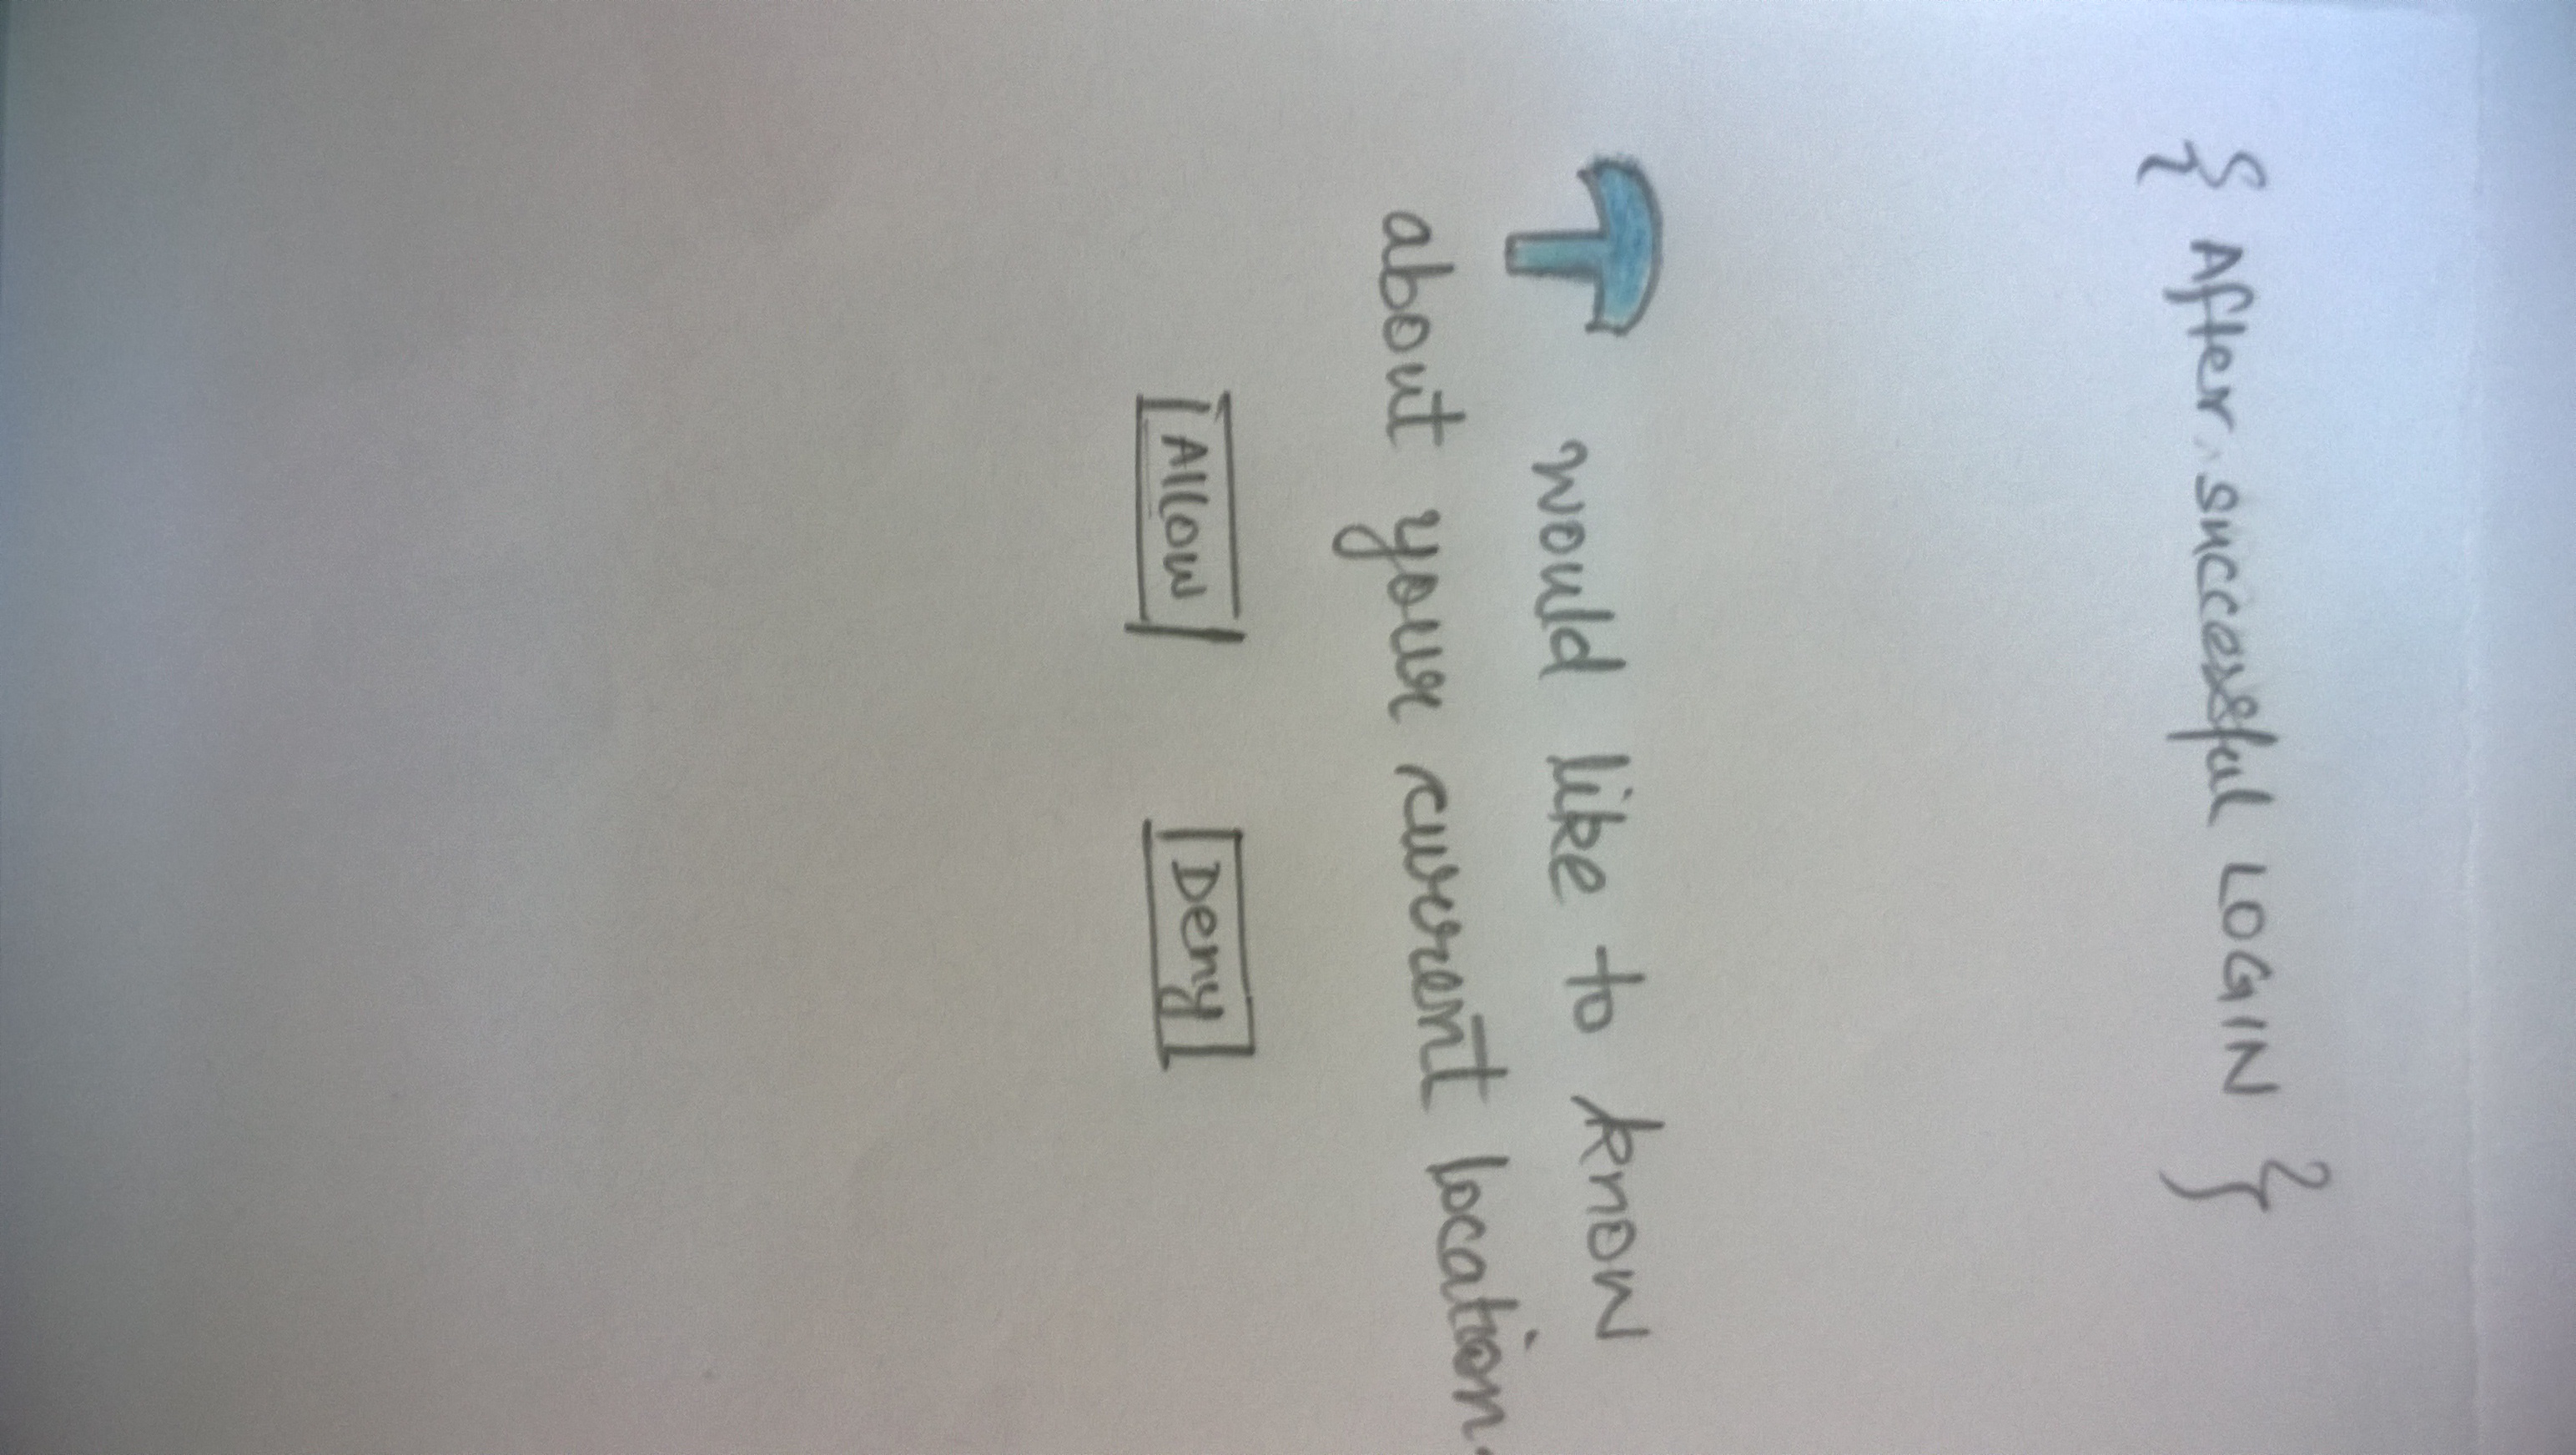 { After successful LOGIN }
would like to know
about your current location.
Allow Deny